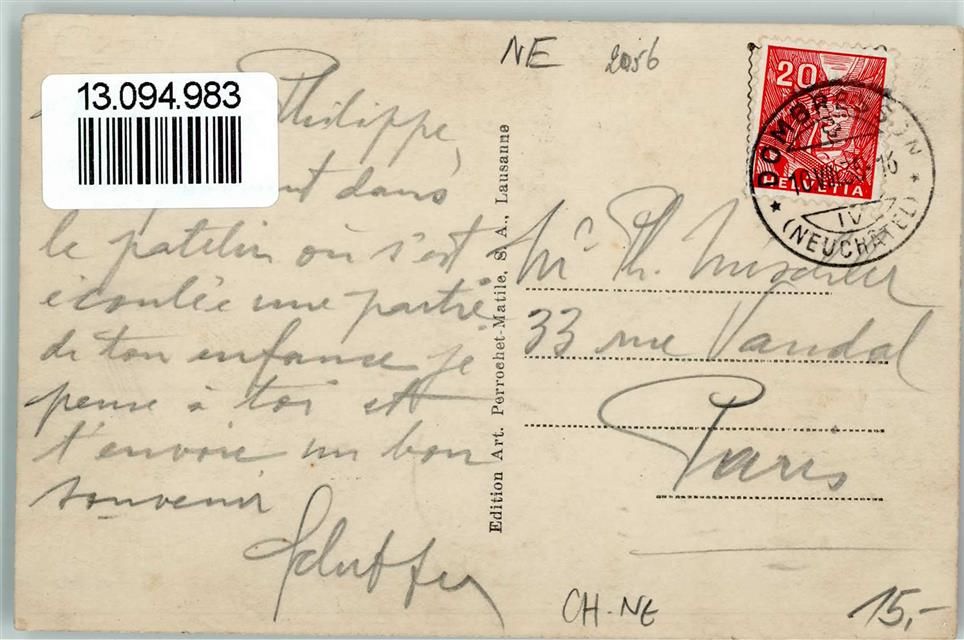 NE 2056
13.094.983
Philippe,
dans
le patelin où s'est
écoulée une partie
de ton enfance je
pense à toi et
t'envoie un bon
souvenir
Edition Art. Perrochet-Matile, S. A., Lausanne
20
HELVETIA
DOMBRESSON
(NEUCHÂTEL)
Mr Ph.
33 rue Vandal
Paris
CH-NE
15,-